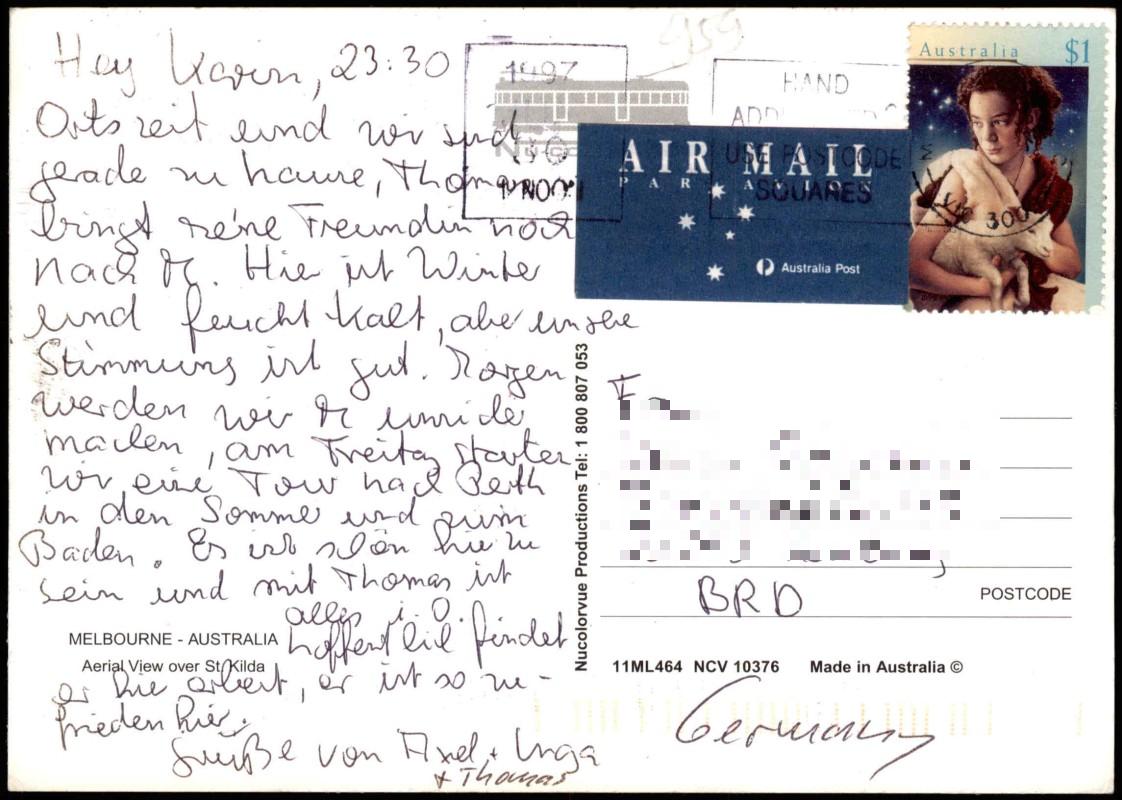 Hey Karin, 23:30
Ortszeit und wir sind
gerade zu hause, Thomas
bringt seine Freundin noch
nach M. Hier ist Winter
und feucht kalt, aber unsere
Stimmung ist gut. Morgen
werden wir M unsicher
machen, am Freitag starten
wir eine Tour nach Perth
in den Sommer und zum
Baden. Es ist schön hier zu
sein und mit Thomas ist
alles i.O.
hoffentlich findet
er hier arbeit, er ist so zu-
frieden hier.
Grüße von Axel + Inga
+ Thomas
MELBOURNE - AUSTRALIA
Aerial View over St. Kilda
Nucolorvue Productions Tel: 1 800 807 053
1997
HAND
USE POSTCODE
SQUARES
AIR MAIL
PAR AVION
Australia Post
Australia $1
BRD
POSTCODE
11ML464 NCV 10376 Made in Australia ©
Germany